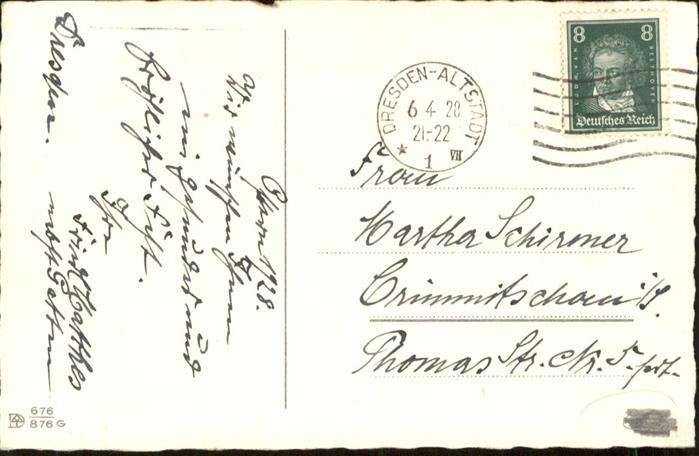 Ostern 1928.
Wir wünschen Ihnen
ein gesundes und
fröhliches Fest.
Ihre
Matthes
nebst Gatten
Dresden.
676
876 G
DRESDEN-ALTSTADT
6 4 28
21-22
* 1 VII
8 8
BEETHOVEN
Deutsches Reich
Frau
Martha Schirmer
Crimmitschau i/S.
Thomas Str. Nr. 5. pt.